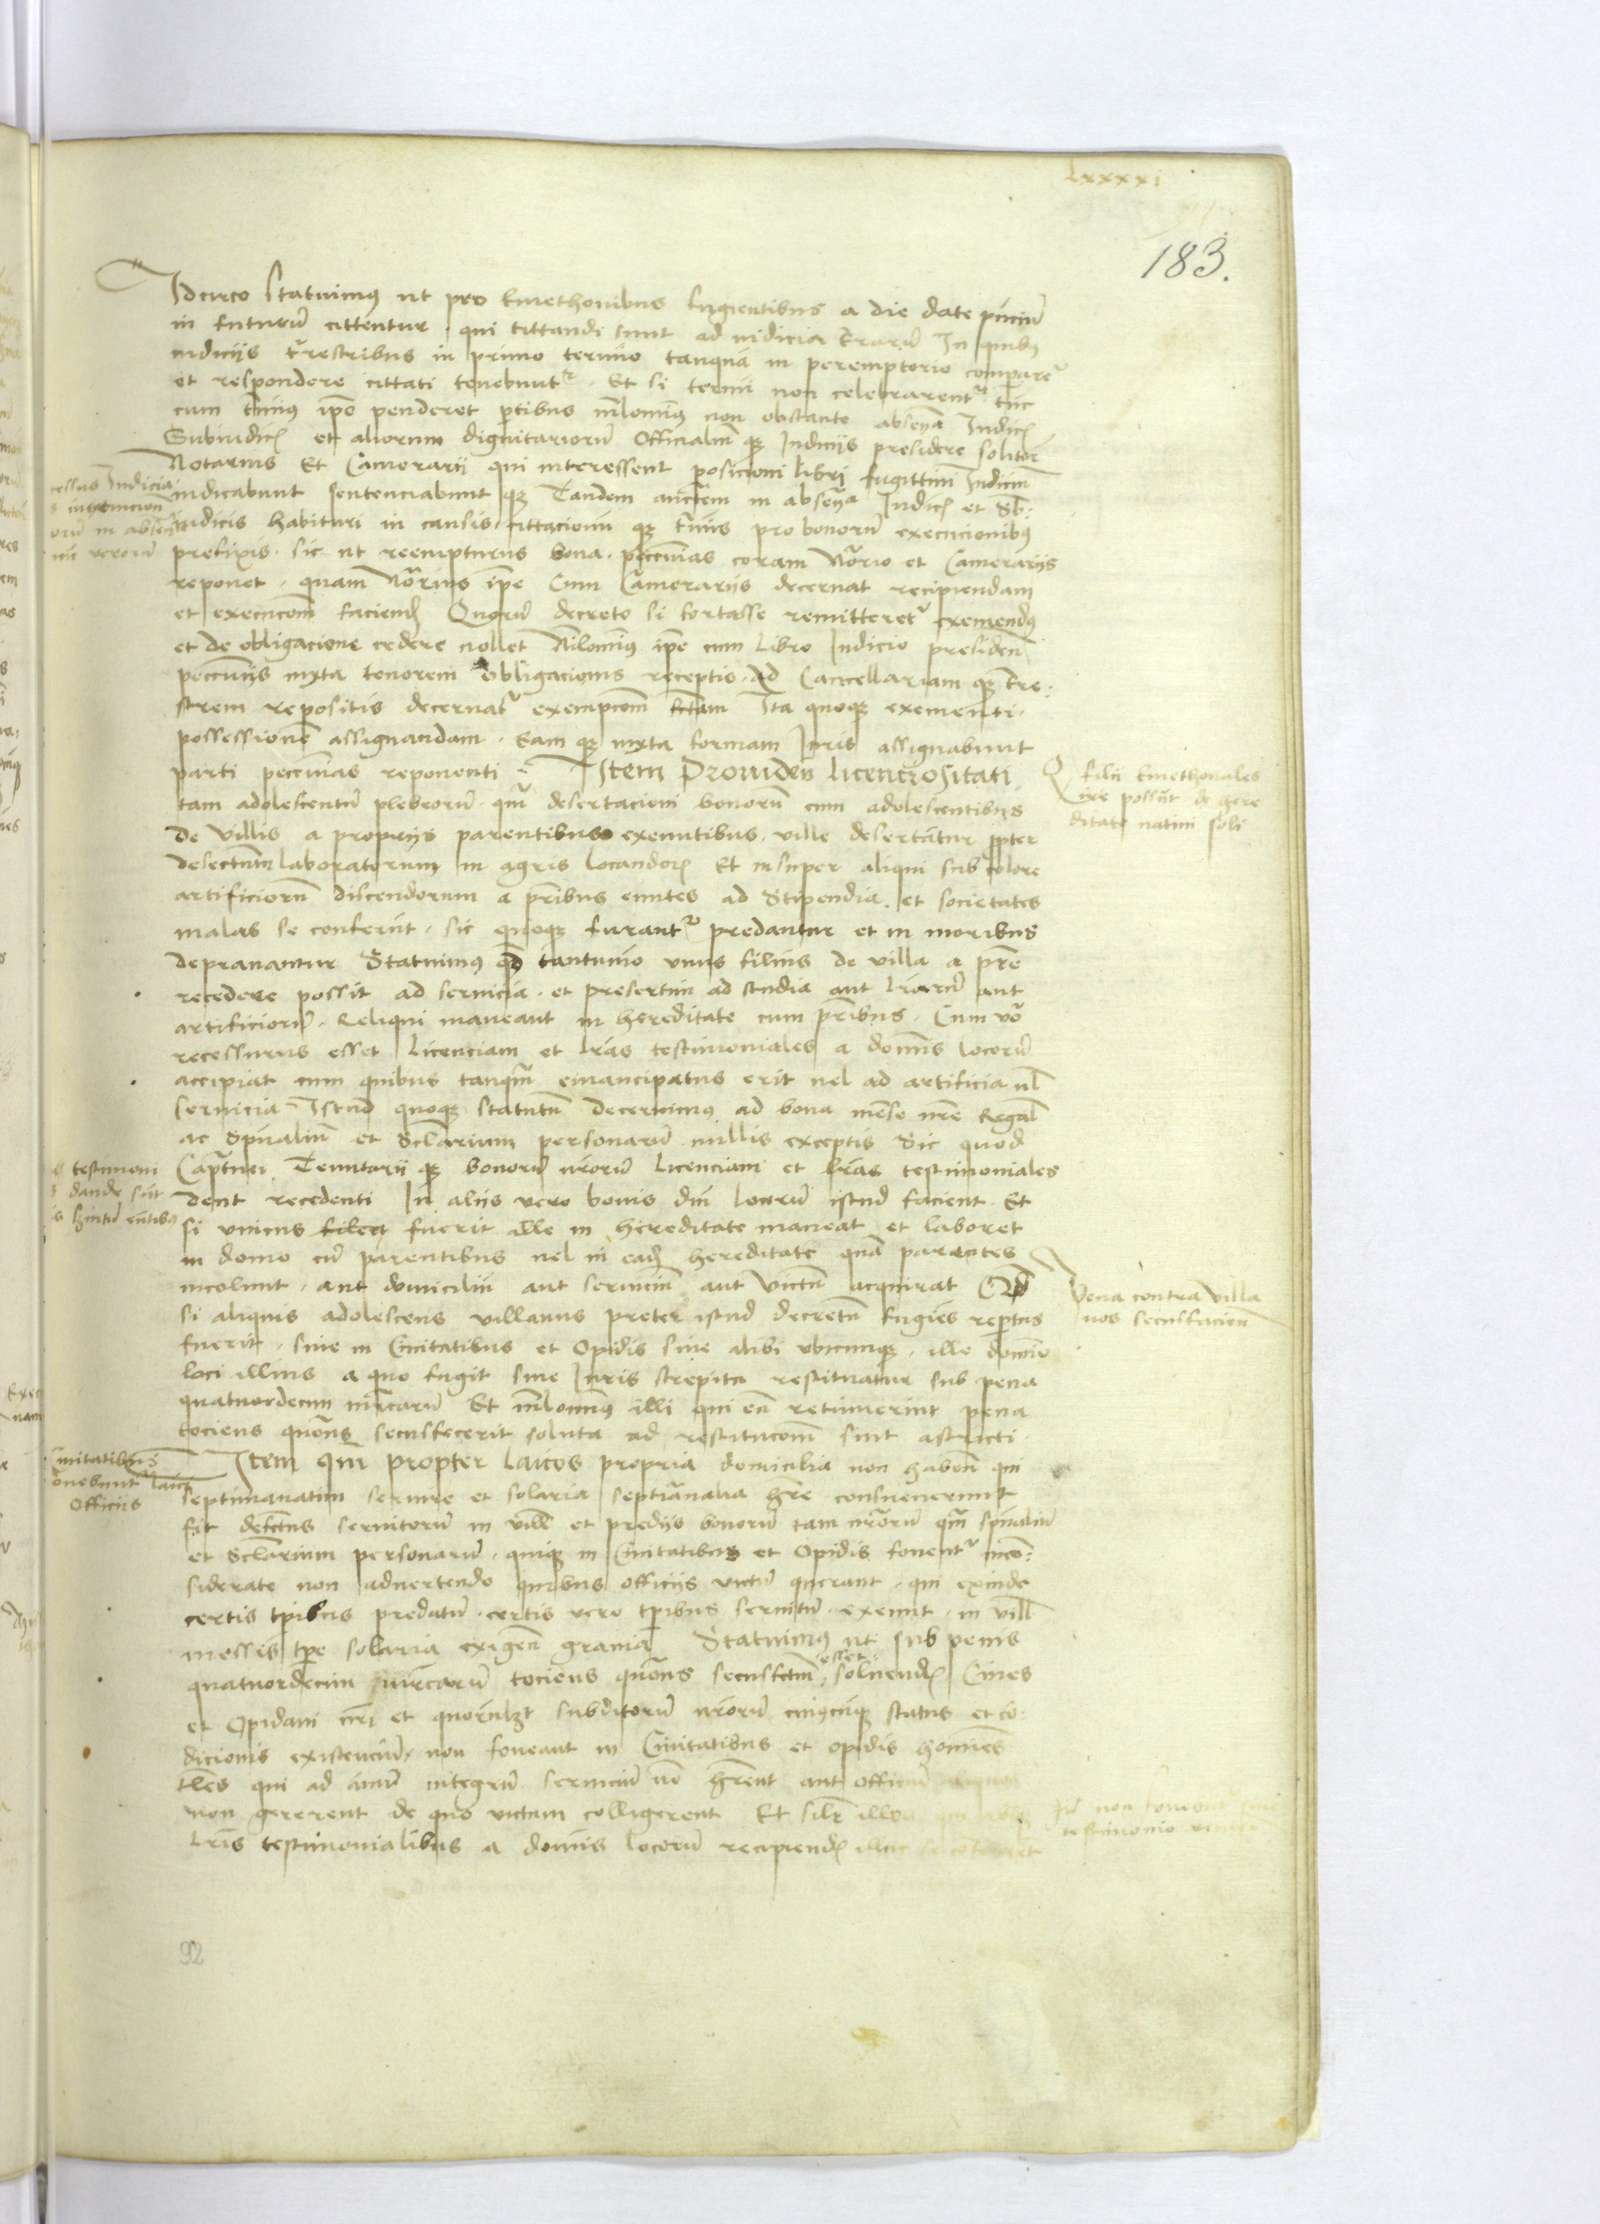 lxxxxi
183.
Idcirco statuimus ut pro kmethonibus fugientibus a die date pn̄ciū
in futurū cittentur qui cittandi sunt ad iudicia t̄rarū In quibus
iudiciis t̄restribus in primo termino tanquā in peremptorio comparere
et respondere cittati tenebunt᷑ Et si termini non celebrarent᷑ tūc
cum t̄minus ip̄e penderet p̄tibus nilomin᷑ non obstante absen̄a Iudicis
Subiudicis et aliorum dignitariorū Officialiū q̢ Iudiciis presidere solitor̄
Notarius Et Camerarii qui interessent posicioni libri fugittiui Iudiciū
iudicabunt sentenciabunt q̢ Tandem auctem in absen̄a Iudicis et Sb:
iudicis habituri in causis cittacionū q̢ t̄minis pro bonorū execucionibus
prefixis sic ut reempturus bona peccunias coram No͞rio et Camerariis
reponet quam No͞rius ip̄e Cum Camerariis decernat recipiendam
et execucōm faciend̄ Quorū decreto si fortasse remitteret᷑ exemendus
et de obligacione cedere nollet Nilomin᷑ ip̄e cum libro Iudicio presiden̄
peccuniis iuxta tenorem obligacionis receptis ad Cancellariam q̢ t̄re:
strem repositis decernat᷑ exempcōm factam Ita quoq̢ exementi
possessionē assignandam Eam q̢ iuxta formam Iuris assignabunt
parti peccunias reponenti Item Prouiden̄ licenciositati
tam adolescentū plebeorū qm̄ desertacioni bonorū cum adolescentibus
de villis a propriis parentibus exeuntibus ville desertātur pp̄ter
defectum laboratorum in agris locandor̄ Et insuper aliqui sub colore
artificiorū discendorum a pr̄ibus euntes ad Stipendia et societates
malas se conferūt sic quoq̢ furant᷑ predantur et in moribus
deprauantur Statuimus qd̄ tantumo vnus filius de villa a pr̄e
recedere possit ad seruicia et presertim ad studia aut lr̄arū aut
artificiorū Reliqui maneant in hereditate cum pr̄ibus Cum vō
recessurus esset licenciam et lr̄as testimoniales a dominis locorū
accipiat cum quibus tanqm̄ emancipatus erit uel ad artificia ul̄
seruicia Istud quoq̢ statutū decernimus ad bona mēse nr̄e Regal̄
ac Sp̄ualiū et Sclarium personarū nullis exceptis Sic quod
Cap̄tnei Tenutarii q̢ bonorū nr̄orū licenciam et lr̄as testimoniales
dent recedenti In aliis vero bonis dn̄i locorū istud facient Et
si vnicus filius fuerit ille in hereditate maneat et laboret
in domo cū parentibus uel in ead̄ hereditate quā parentes
incolunt aut domiciliū aut seruiciū aut victū acquirat Qd̄
si aliquis adolescens villanus preter istud decretū fugiēs reptus
fuerit siue in Ciuitatibus et Opidis siue alibi vbicunq̢ ille domino
loci illius a quo fugit sine Iuris strepitu restituatur sub pena
quatuordecim mr̄carū Et nilomin᷑ illi qui eū retinuerint pena
tociens quociens secusfecerit soluta ad restitucōm sint astricti
Item qm̄ propter laicos propria domicilia non haben̄ qui
septimanatim seruire et solaria septīanalia hr̄e consueuerunt
fit defectus seruitorū in vill̄ et prediis bonorū tam nr̄orū qm̄ sp̄ualiū
et Sclarium personarū quiq̢ in Ciuitatibus et Opidis fouent᷑ incō:
siderate non aduertendo quibus officiis victū querant qui exinde
certis tp̄ibus predatū certis vero tp̄ibus seruitū exeunt in vill̄
messis tp̄e solaria exigen̄ grauia Statuimus ut sub penis
quatuordecim mr̄carū tociens quociens secusfactum esset soluend̄ Ciues
et Opidani nr̄i et quorūlz̄t subditorū nr̄orū cuiuscunq̢ status et cō:
dicionis existenciū non foueant in Ciuitatibus et opidis homines
tales qui ad annū integrū seruiciū nō hr̄ent aut officiū
non gererent de quo victum colligerent Et sil̄r illos
lr̄is testimonialibus a dominis locorū recipiend̄
Iudicia
in absen̄
filii kmethonales
ire possūt de here
ditate natiui soli
testimoni
dande sūt
Pena contra villa
nos secusfacien̄
Ciuitatibus
laici
Officiis
non
testimonio
92